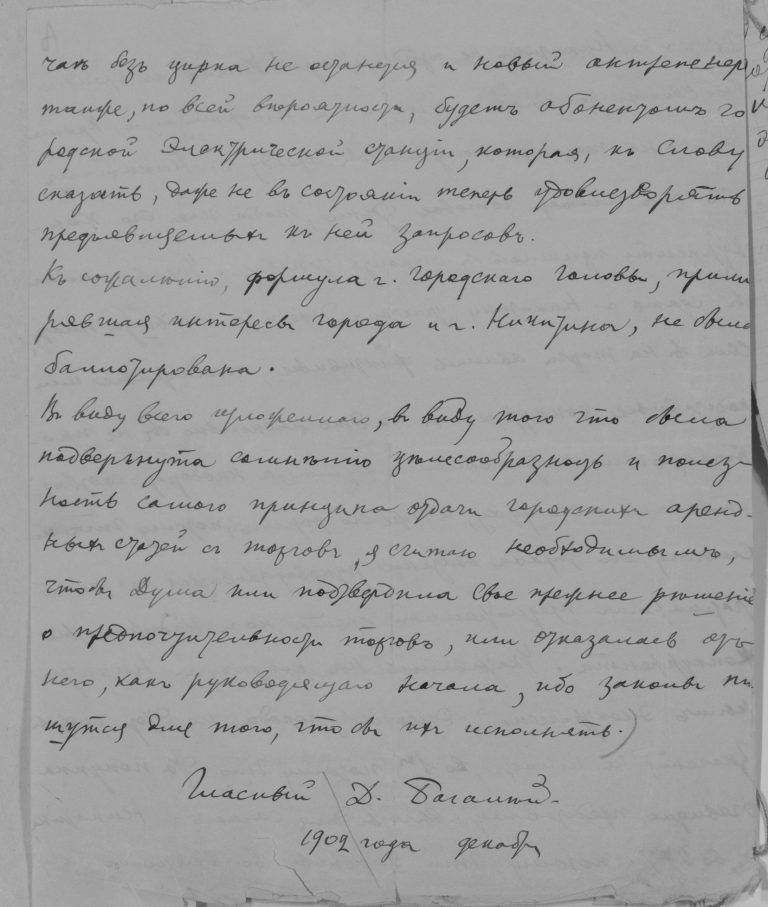 чаѣ безъ цирка не останется и новый антрепенер
также, по всей вѣроятности, будетъ абонентомъ го
родской Электрической станціи, которая, къ слову
сказать, даже не въ состояніи теперь удовлетворять
предъявляемыхъ къ ней запросовъ.
Къ сожалѣнію, формула г. Городскаго Головы, прими
рявшая интересы города и г. Никитина, не была
баллотирована.
Въ виду всего изложеннаго, въ виду того что была
подвергнута сомнѣнію цѣлесообразность и полез-
ность самого принципа отдачи городскихъ аренд-
ныхъ статей съ торговъ, я считаю необходимымъ,
чтобы Дума или подтвердила свое прежнее рѣшеніе
о предпочтительности торговъ, или отказалась отъ
него, какъ руководящаго начала, ибо законы пи
шутся для того, чтобы ихъ исполнять.
Гласный Д. Багалѣй
1902 года декабр